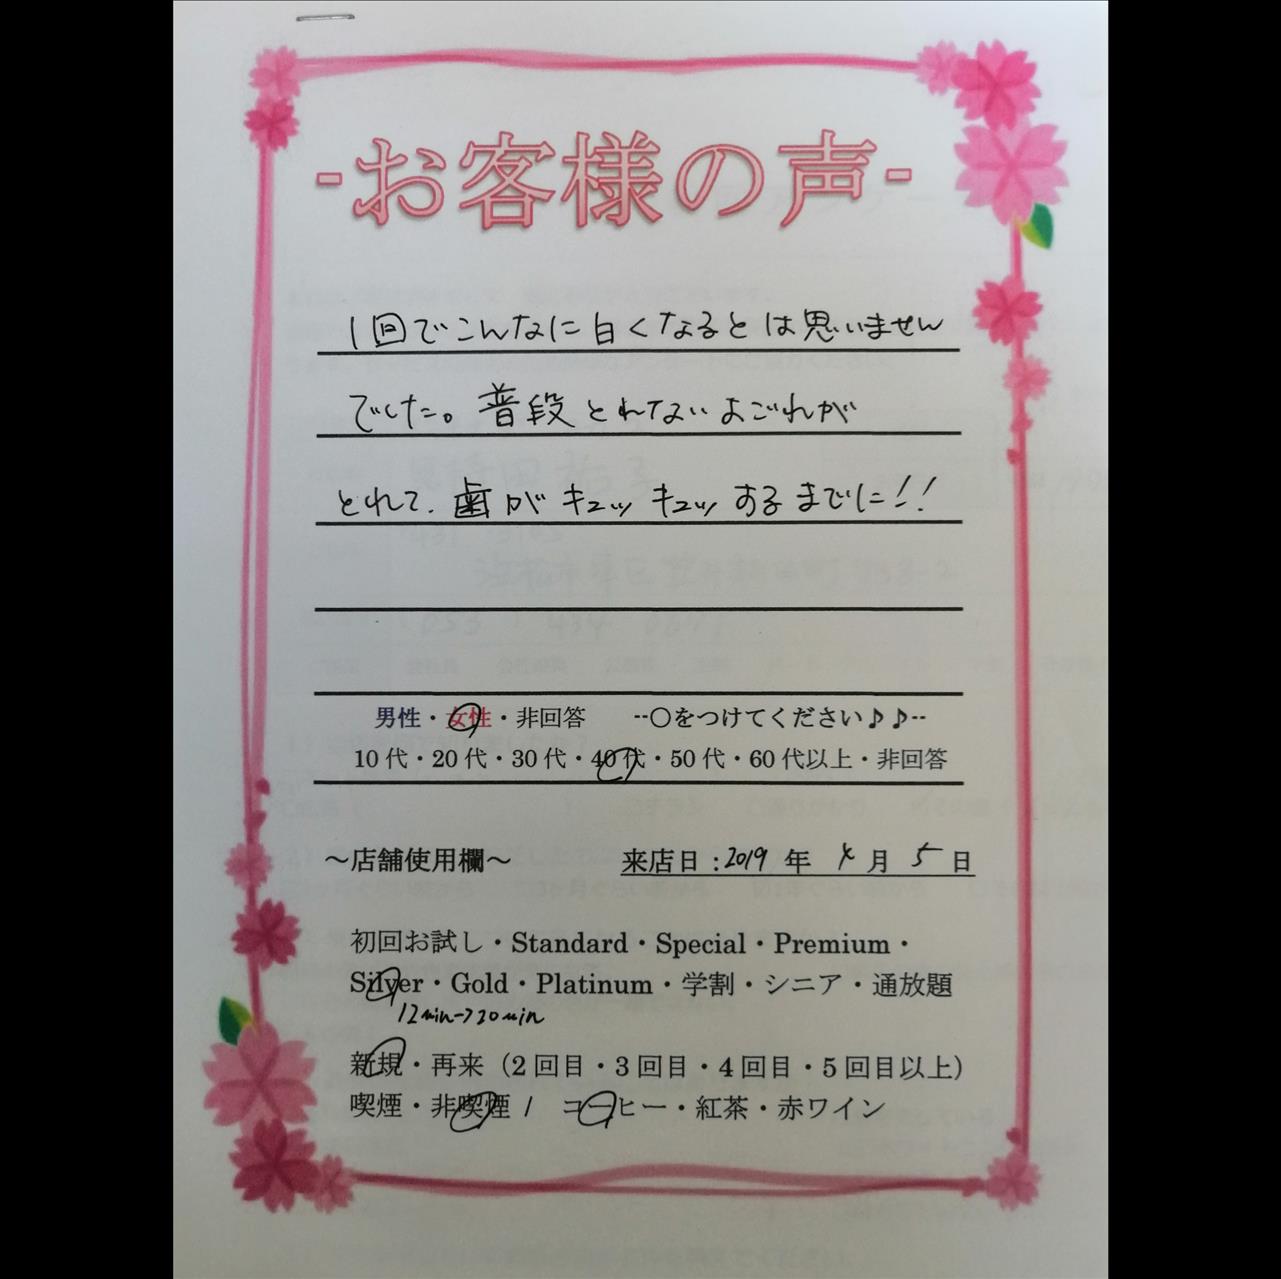 -お客様の声-
1回でこんなに白くなるとは思いません
でした。普段とれないよごれが
とれて、歯がキュッキュッするまでに!!
男性・女性・非回答 --〇をつけてください♪♪--
10代・20代・30代・40代・50代・60代以上・非回答
～店舗使用欄～ 来店日：2019年 4月 5日
初回お試し・Standard・Special・Premium・
Silver・Gold・Platinum・学割・シニア・通放題
12min->20min
新規・再来（2回目・3回目・4回目・5回目以上）
喫煙・非喫煙 / コーヒー・紅茶・赤ワイン